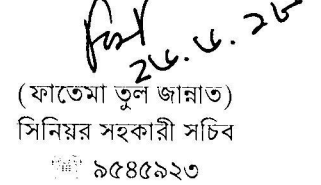 ২৬.৬.২৮
(ফাতেমা তুল জান্নাত)
সিনিয়র সহকারী সচিব
৯৫৪৫৯২৩